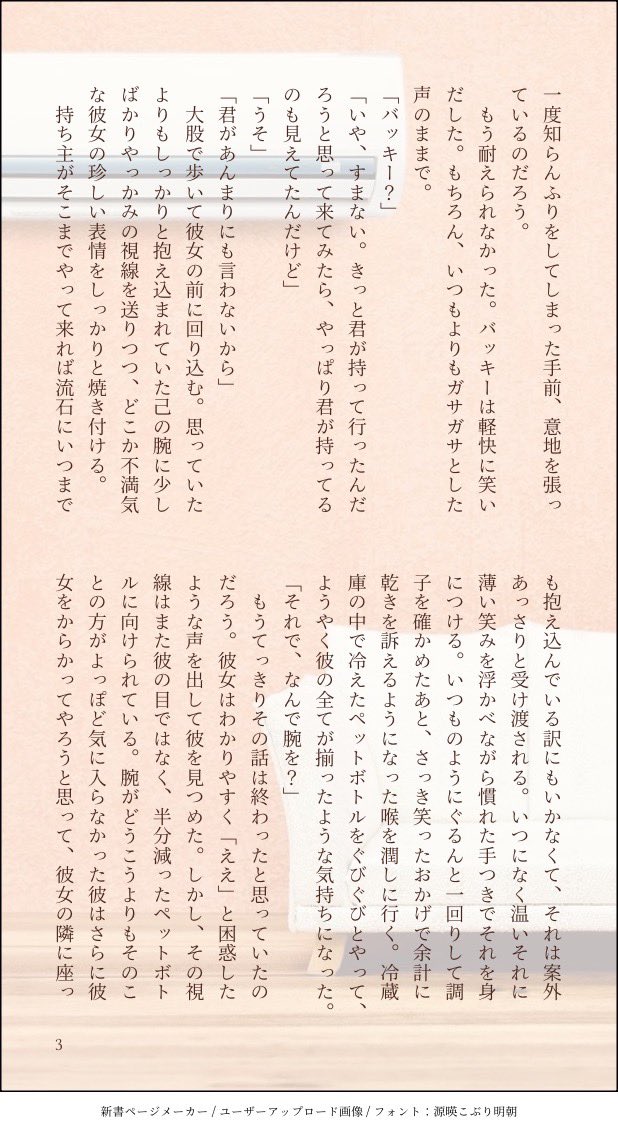 一度知らんふりをしてしまった手前、意地を張っ
ているのだろう。
　もう耐えられなかった。バッキーは軽快に笑い
だした。もちろん、いつもよりもガサガサとした
声のままで。
「バッキー？」
「いや、すまない。きっと君が持って行ったんだ
ろうと思って来てみたら、やっぱり君が持ってる
のも見えてたんだけど」
「うそ」
「君があんまりにも言わないから」
　大股で歩いて彼女の前に回り込む。思っていた
よりもしっかりと抱え込まれていた己の腕に少し
ばかりやっかみの視線を送りつつ、どこか不満気
な彼女の珍しい表情をしっかりと焼き付ける。
　持ち主がそこまでやって来れば流石にいつまで
も抱え込んでいる訳にもいかなくて、それは案外
あっさりと受け渡される。いつになく温いそれに
薄い笑みを浮かべながら慣れた手つきでそれを身
につける。いつものようにぐるんと一回りして調
子を確かめたあと、さっき笑ったおかげで余計に
乾きを訴えるようになった喉を潤しに行く。冷蔵
庫の中で冷えたペットボトルをぐびぐびとやって、
ようやく彼の全てが揃ったような気持ちになった。
「それで、なんで腕を？」
　もうてっきりその話は終わったと思っていたの
だろう。彼女はわかりやすく「ええ」と困惑した
ような声を出して彼を見つめた。しかし、その視
線はまた彼の目ではなく、半分減ったペットボト
ルに向けられている。腕がどうこうよりもそのこ
との方がよっぽど気に入らなかった彼はさらに彼
女をからかってやろうと思って、彼女の隣に座っ
3
新書ページメーカー / ユーザーアップロード画像 / フォント：源暎こぶり明朝